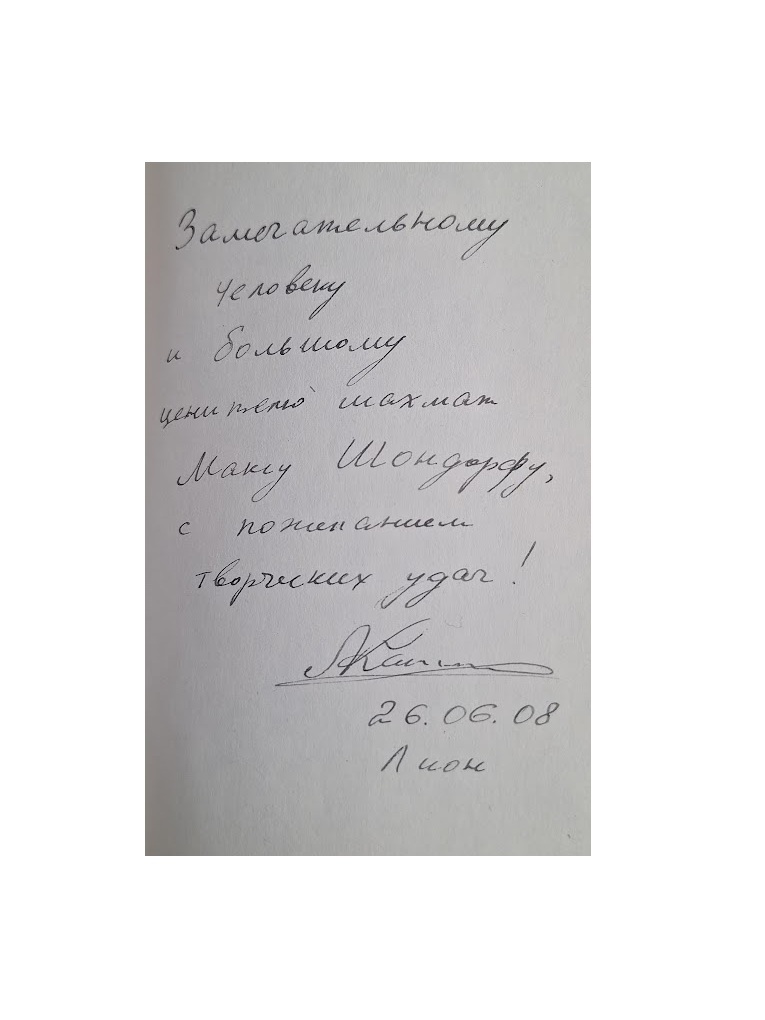 Замечательному
человеку
и большому
ценителю шахмат
Максу Шондорфу,
с пожеланием
творческих удач!
26.06.08
Лион